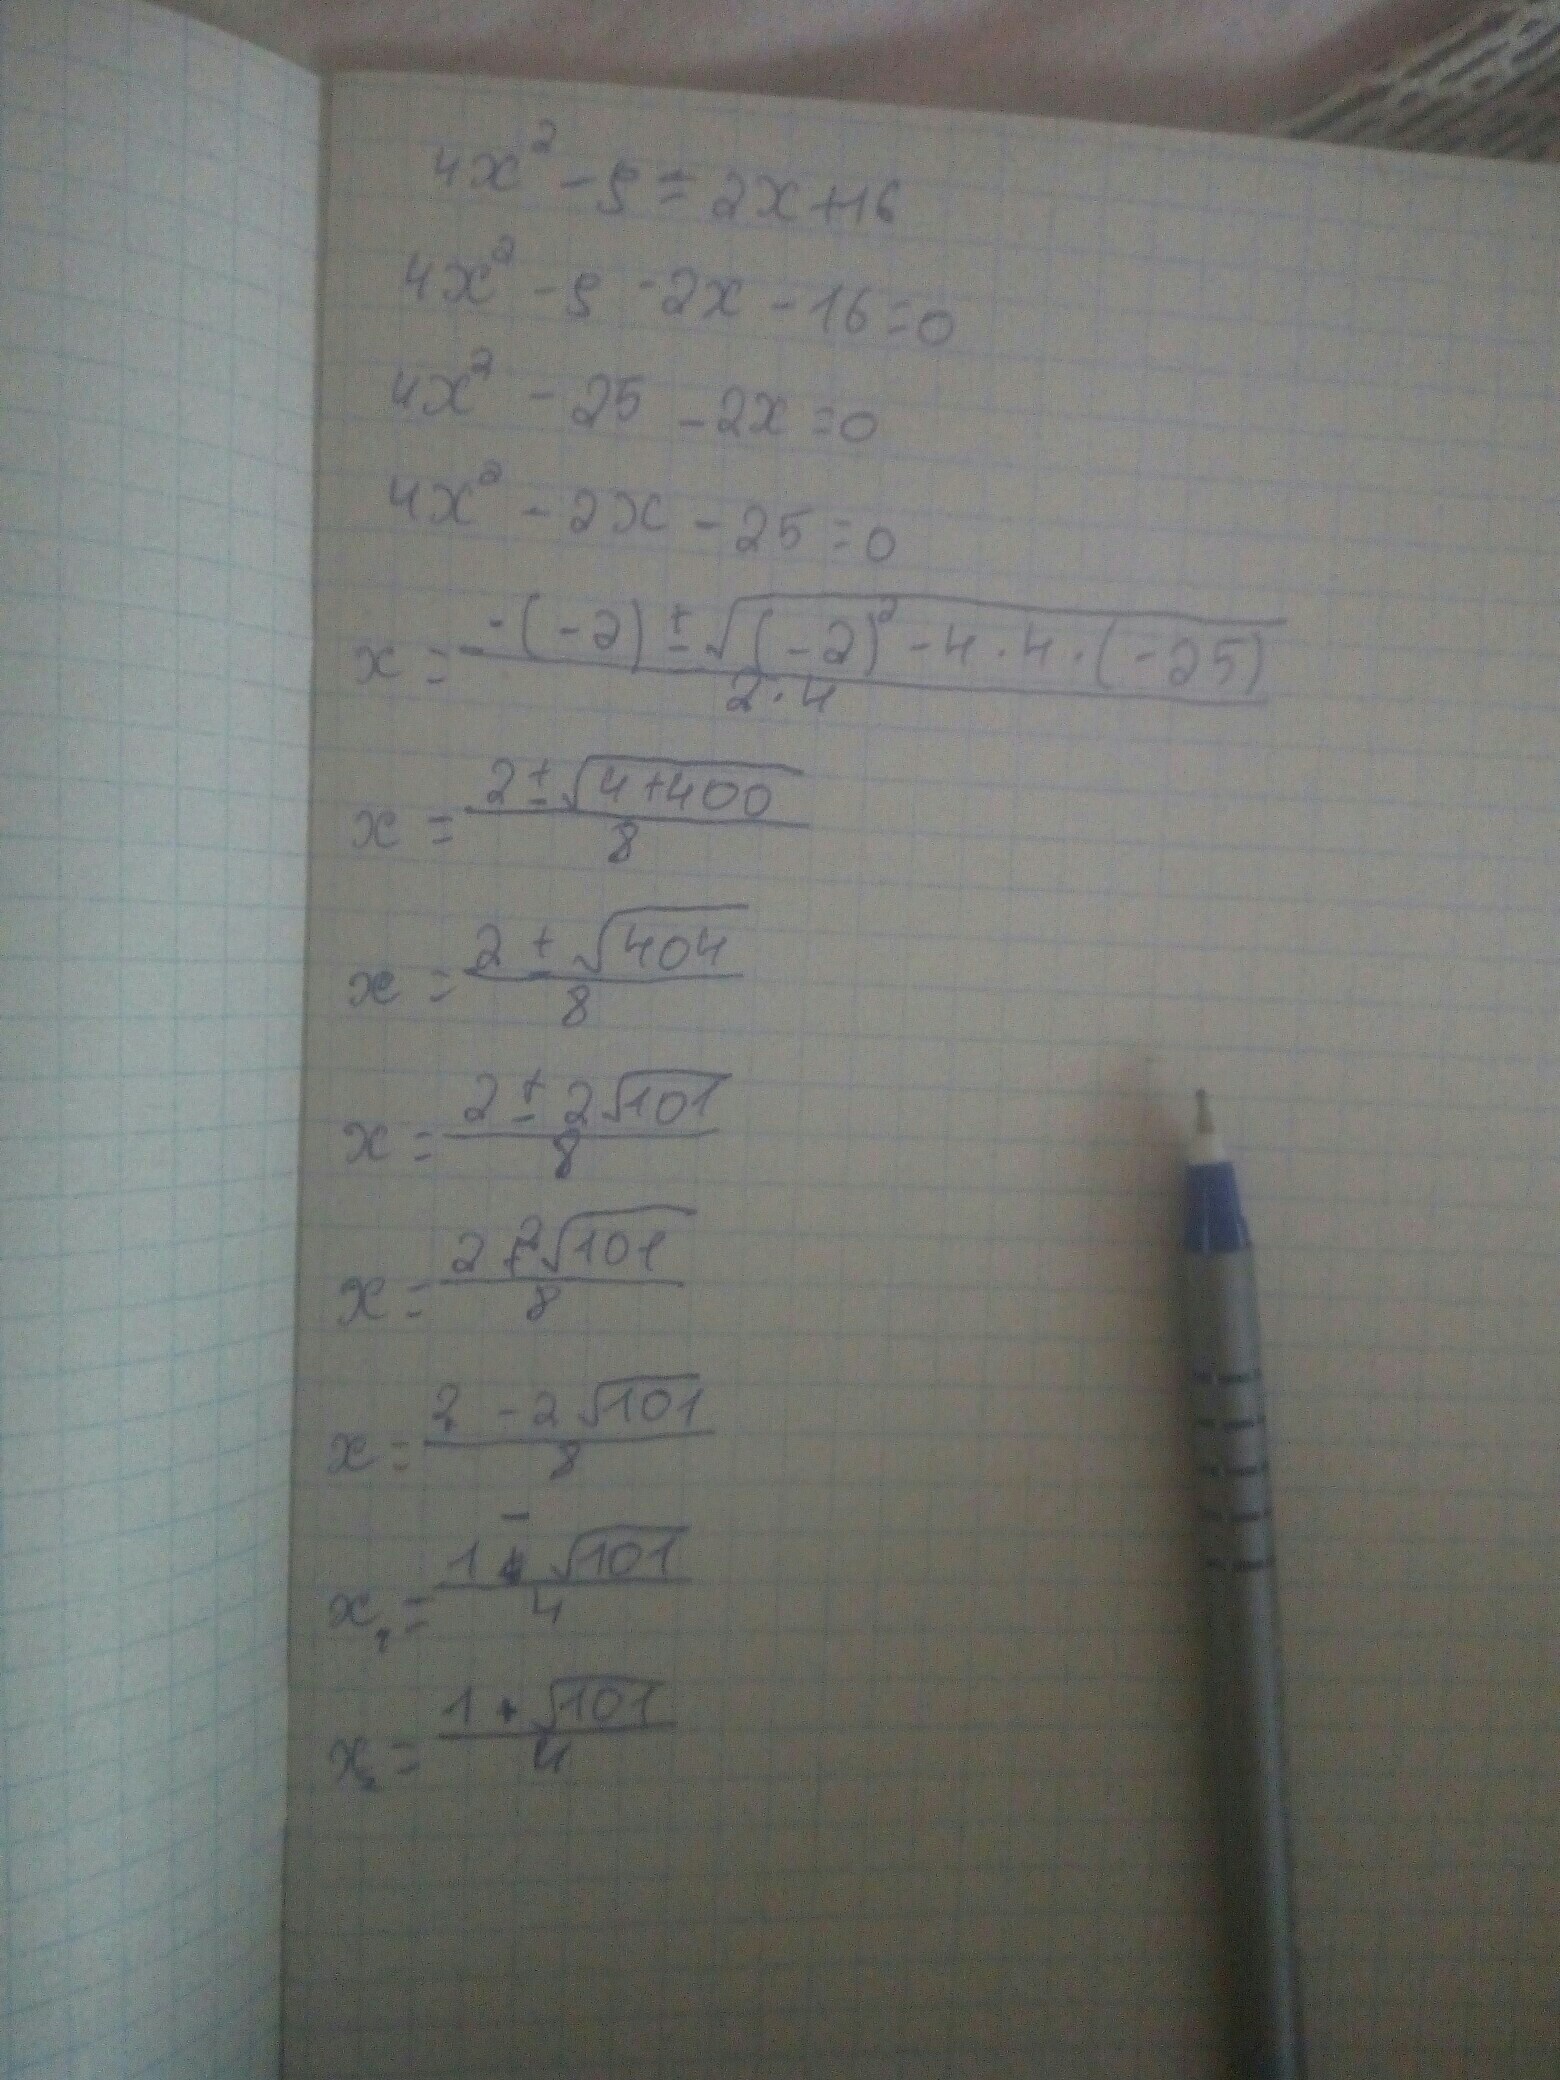 4x² - 9 = 2x + 16
4x² - 9 - 2x - 16 = 0
4x² - 25 - 2x = 0
4x² - 2x - 25 = 0
x = (-(-2) ± √((-2)² - 4 · 4 · (-25))) / (2 · 4)
x = (2 ± √(4+400)) / 8
x = (2 ± √404) / 8
x = (2 ± 2√101) / 8
x = (2 + 2√101) / 8
x = (2 - 2√101) / 8
x₁ = (1 - √101) / 4
x₂ = (1 + √101) / 4